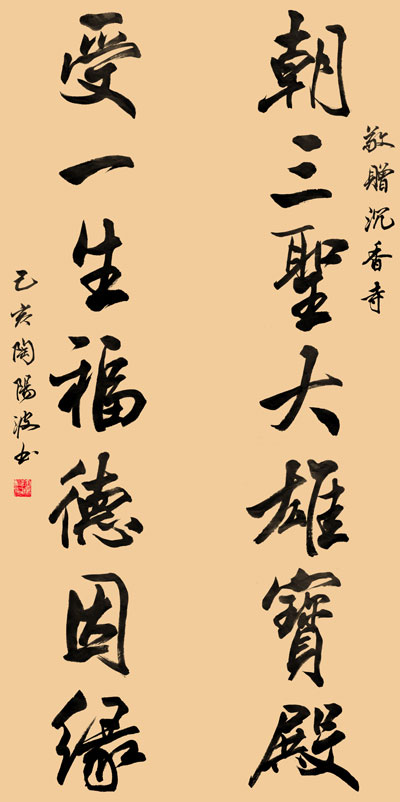 敬贈沉香寺
朝三聖大雄寶殿
受一生福德因緣
己亥陶陽波书